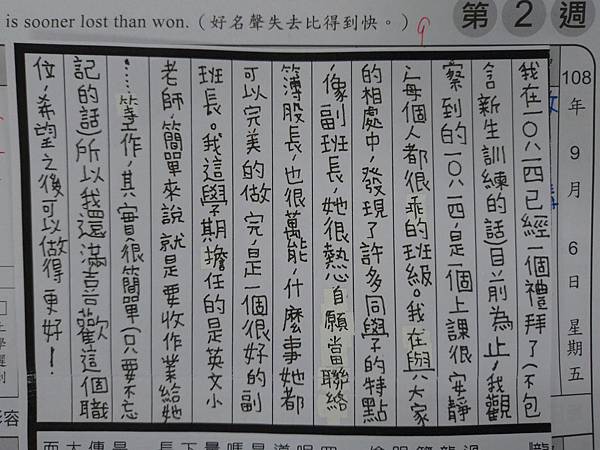 is sooner lost than won.（好名聲失去比得到快。）
第2週
108年9月6日 星期五
我在一〇八一四已經一個禮拜了(不包
含新生訓練的話)目前為止，我觀
察到的一〇八一四，是一個上課很安靜
、每個人都很乖的班級。我在與大家
的相處中，發現了許多同學的特點
，像副班長，她很熱，自願當聯絡
簿股長，也很萬能，什麼事她都
可以完美的做完，是一個很好的副
班長。我這學期擔任的是英文小
老師，簡單來說就是要收作業給她
……等工作，其實很簡單(只要不忘
記的話)所以我還滿喜歡這個職
位，希望之後可以做得更好！